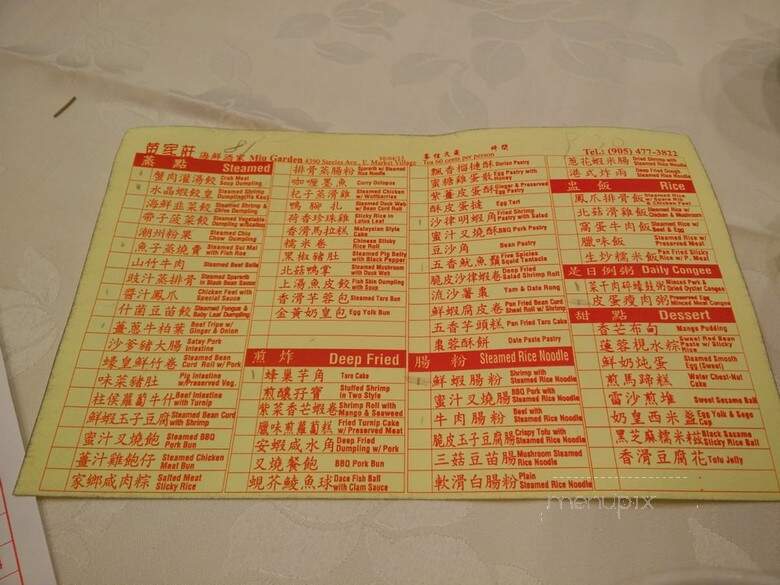 海鮮酒家 Ming Garden 4390 Steeles Ave., E. Market Village Tea 60 cents per person
Tel.: (905) 477-3822
蒸 點 Steamed
蟹肉灌湯餃 Crab Meat Soup Dumpling
水晶蝦餃皇
海鮮韮菜餃 Steamed Shrimp & Chive Dumpling
帶子菠菜餃
潮州粉果 Steamed Chiu Chow Dumpling
魚子蒸燒賣 Steamed Sui Mai with Fish Roe
山竹牛肉 Steamed Beef Balls
豉汁蒸排骨 Steamed Sparerib in Black Bean Sauce
醬汁鳳爪 Chicken Feet with Special Sauce
什菌豆苗餃 Steamed Fungus & Baby Leaf Dumpling
薑蔥牛柏葉 Beef Tripe w/ Ginger & Onion
沙爹豬大腸 Satay Pork Intestine
蠔皇鮮竹卷 Steamed Bean Curd Roll w/ Pork
味菜豬肚 Pig Intestine w/Preserved Veg.
柱侯蘿蔔牛什 Beef Intestine with Turnip
鮮蝦玉子豆腐 Steamed Bean Curd with Shrimp
蜜汁叉燒飽 Steamed BBQ Pork Bun
薑汁雞飽仔 Steamed Chicken Meat Bun
家鄉咸肉粽 Salted Meat Sticky Rice
排骨蒸腸粉 Sparerib w/ Steamed Rice Noodle
咖喱墨魚 Curry Octopus
杞子蒸滑雞 Steamed Chicken w/ Wolfberries
鴨腳扎 Steamed Duck Web w/ Bean Curd Roll
荷香珍珠雞 Sticky Rice in Lotus Leaf
香滑馬拉糕 Malaysian Style Cake
糯米卷 Chinese Sticky Rice Roll
黑椒豬肚 Steamed Pig Belly with Black Pepper
北菇鴨掌 Steamed Mushroom with Duck Web
上湯魚皮餃 Fish Skin Dumpling with Soup
香滑芋蓉包 Steamed Taro Bun
金黃奶皇包 Egg Yolk Bun
煎 炸 Deep Fried
蜂巢芋角 Taro Cake
煎釀孖寶 Stuffed Shrimp in Two Style
紫菜香芒蝦卷 Shrimp Roll with Mango & Seaweed
臘味煎蘿蔔糕 Fried Turnip Cake w/ Preserved Meat
安蝦咸水角 Deep Fried Dumpling w/ Pork
叉燒餐飽 BBQ Pork Bun
蜆芥鯪魚球 Dace Fish Ball with Clam Sauce
飄香榴槤酥 Durian Pastry
蜜糖雞蛋散 Egg Pastry with Honey
紫薑皮蛋酥 Ginger & Preserved Egg Pastry
酥皮蛋撻 Egg Tart
沙律明蝦角 Fried Shrimp Pastry with Salad
蜜汁叉燒酥 BBQ Pork Pastry
豆沙角 Bean Pastry
五香魷魚鬚 Five Spicies Squid Tentacle
脆皮沙律蝦卷 Deep Fried Salad Shrimp Roll
流沙薯棗 Yam & Date Rong
鮮蝦腐皮卷 Pan Fried Bean Curd Sheet Roll w/ Shrimp
五香芋頭糕 Pan Fried Taro Cake
棗蓉酥餅 Date Paste Pastry
腸 粉 Steamed Rice Noodle
鮮蝦腸粉 Shrimp with Steamed Rice Noodle
蜜汁叉腸 BBQ Pork with Steamed Rice Noodle
牛肉腸粉 Beef with Steamed Rice Noodle
脆皮玉子豆腐腸 Crispy Tofu with Steamed Rice Noodle
三菇豆苗腸 Mushroom Steamed Rice Noodle
軟滑白腸粉 Plain Steamed Rice Noodle
蔥花蝦米腸 Dried Shrimp with Steamed Rice Noodle
港式炸兩 Deep Fried Dough Steamed Rice Noodle
盅 飯 Rice
鳳爪排骨飯
北菇滑雞飯 Steamed Rice w/ Chicken & Mushroom
窩蛋牛肉飯 Steamed Rice w/ Beef & Egg
臘味飯 Steamed Rice w/ Preserved Meat
生炒糯米飯 Fried Sticky Rice w/ P. Meat
是日例粥 Daily Congee
菜干肉碎蠔豉粥 Minced Pork & Dried Oyster Congee
皮蛋瘦肉粥 Preserved Egg Minced Meat Congee
甜 點 Dessert
香芒布甸 Mango Pudding
蓮蓉梘水粽 Sweet Red Bean Paste w/ Sticky Rice
鮮奶炖蛋 Steamed Smooth Egg (Sweet)
煎馬蹄糕 Water Chest-Nut Cake
雷沙煎堆 Sweet Sesame Ball
奶皇西米盞 Egg Yolk & Sago Cup
黑芝麻糯米糍 Black Sasame Sticky Rice Ball
香滑豆腐花 Tofu Jelly
menupix